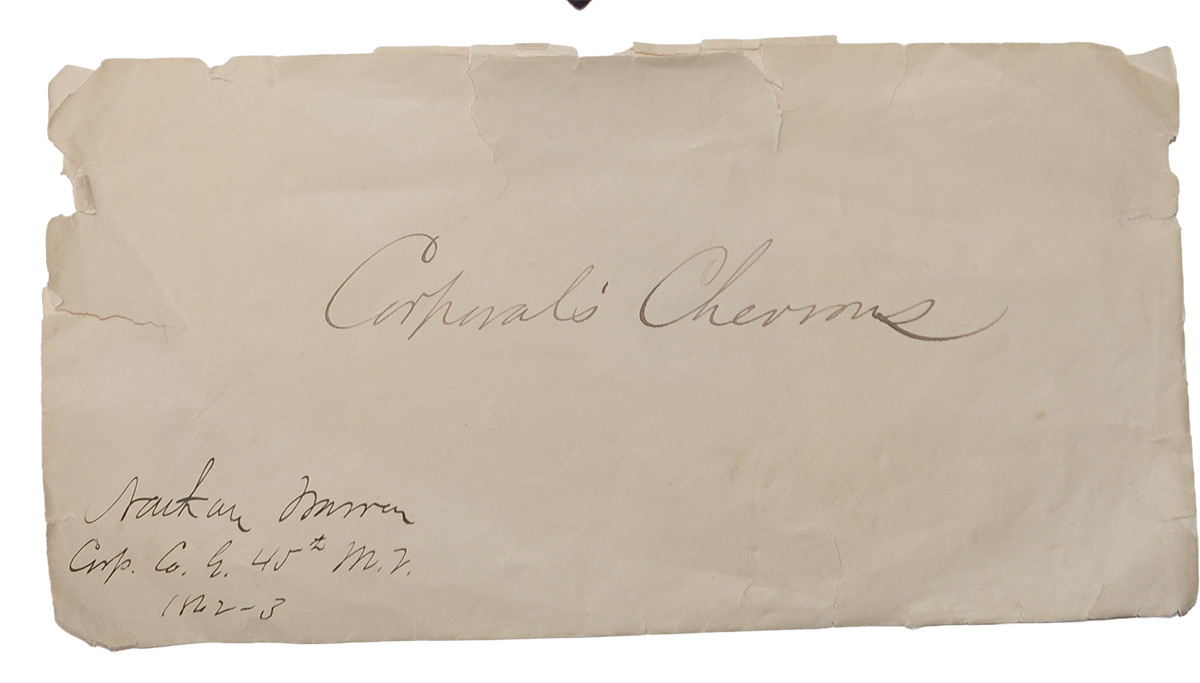 Corporal's Chevrons
Nathan Warren
Corp. Co. G. 45th M.V.
1862-3